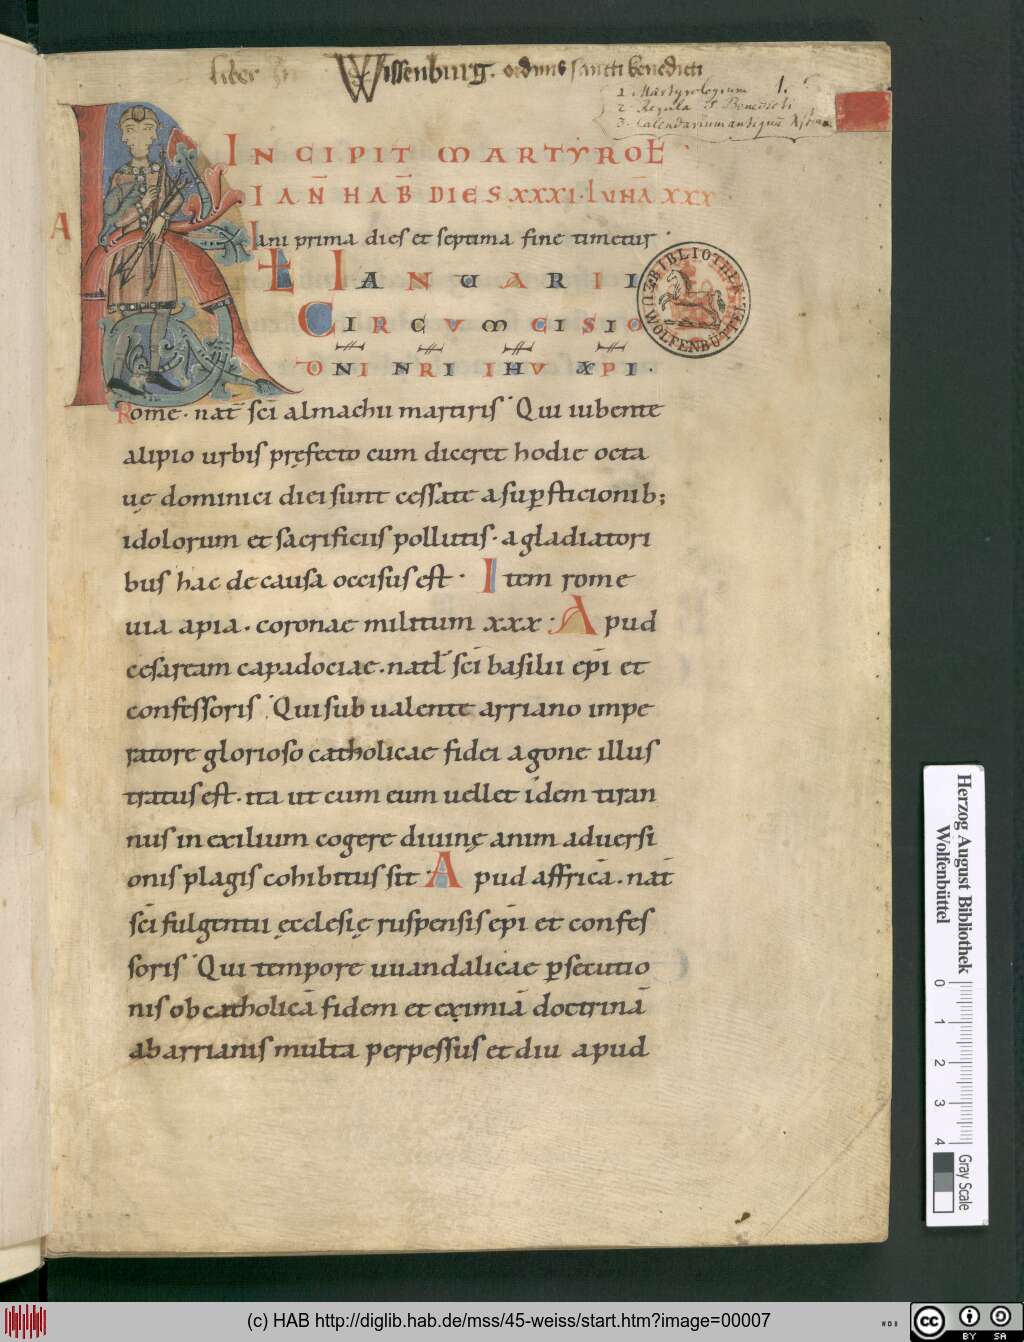 liber in Wissenburg. ordinis sancti benedicti
1. Martyrologium 1.
2. Regula S. Benedicti
3. Calendarium antiquū
INCIPIT MARTYROL̄
IAN̄ HAB̄ DIES XXXI · LVNĀ XXX
A
Iani prima dies et septima fine timetur ·
KƗ IANUARII
CIRCVMCISIO
D̄NI N̄RI IH̄V X̄PI ·
BIBLIOTHEK ZU WOLFENBÜTTEL
Rome · nat̄ sc̄i almachii martiris · Qui iubente
alipio urbis pręfecto cum diceret hodie octa
uę dominici diei sunt cessate a sup̱sticionib;
idolorum et sacrificiis pollutis · a gladiatori
bus hac de causa occisus est · Item rome
uia apia · coronae militum xxx · Apud
cesaream capadociae · natl̄ sc̄i basilii ep̄i et
confessoris · Qui sub ualente arriano impe
ratore glorioso catholicae fidei agone illus
tratus est · ita ut cum eum uellet idem tiran
nus in exilium cogere diuinę animaduersi
onis plagis cohibitus sit · Apud affricā · nat̄
sc̄i fulgentii ęcclesię ruspensis ep̄i et confes
soris · Qui tempore uuandalicae p̱secutio
nis ob catholicā fidem et eximiā doctrinā
ab arrianis multa perpessus et diu apud
Herzog August Bibliothek
Wolfenbüttel
0 1 2 3 4
Gray Scale
(c) HAB http://diglib.hab.de/mss/45-weiss/start.htm?image=00007
WDB
cc BY SA